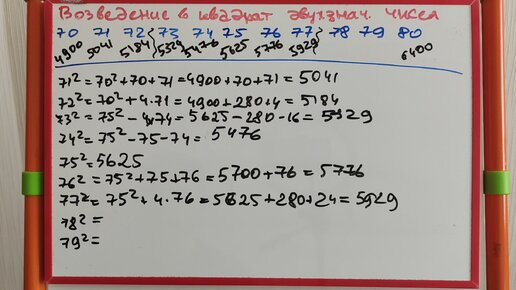 Возведение в квадрат двухзнач. чисел
70 71 72 73 74 75 76 77 78 79 80
4900 5041 5184 5329 5476 5625 5776 5929 6400
71² = 70² + 70 + 71 = 4900 + 70 + 71 = 5041
72² = 70² + 4·71 = 4900 + 280 + 4 = 5184
73² = 75² - 4·74 = 5625 - 280 - 16 = 5329
74² = 75² - 75 - 74 = 5476
75² = 5625
76² = 75² + 75 + 76 = 5700 + 76 = 5776
77² = 75² + 4·76 = 5625 + 280 + 24 = 5929
78² =
79² =